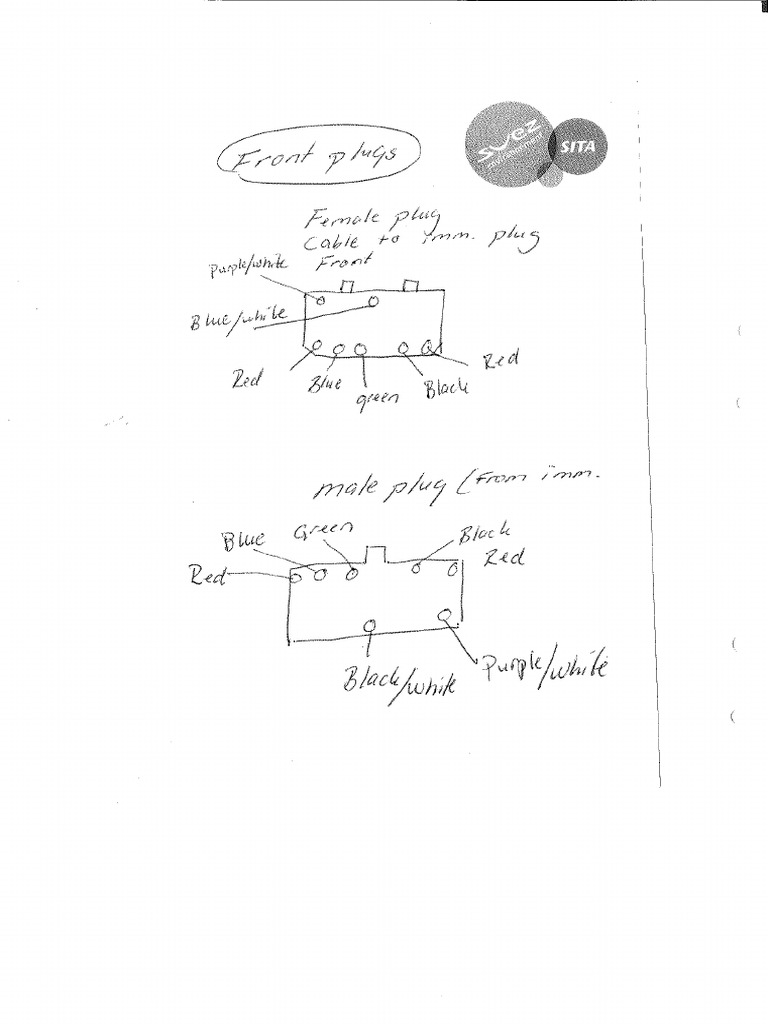 Front plugs
suez
environnement
SITA
Female plug
Cable to imm. plug
Front
Purple/white
Blue/white
Red
Blue
green
Black
Red
male plug (From imm.
Blue
Green
Black
Red
Red
Black/white
Purple/white